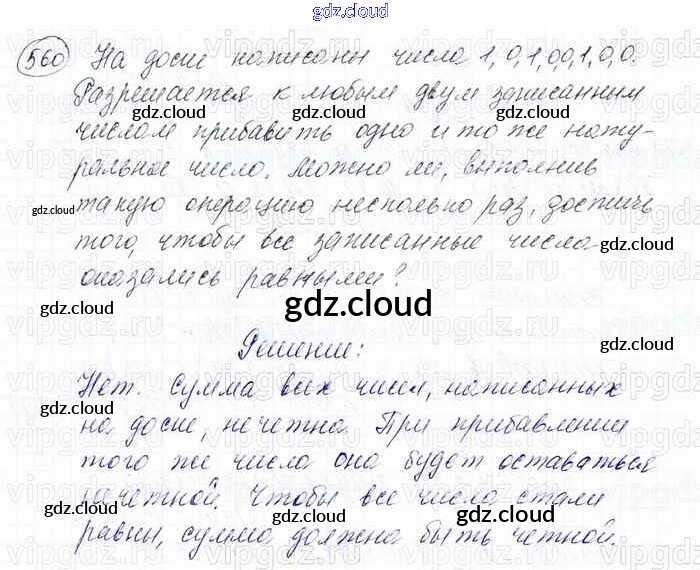 gdz.cloud
560 На доске написаны числа 1, 0, 1, 0,0, 1, 0, 0.
Разрешается к любым двум записанным
числам прибавить одно и то же нату-
ральное число. Можно ли, выполнив
такую операцию несколько раз, достичь
того, чтобы все записанные числа
оказались равными?
gdz.cloud
Решение:
Нет. Сумма всех чисел, написанных
на доске, нечетна. При прибавлении
того же числа она будет оставаться
нечетной. Чтобы все числа стали
равны, сумма должна быть четной.